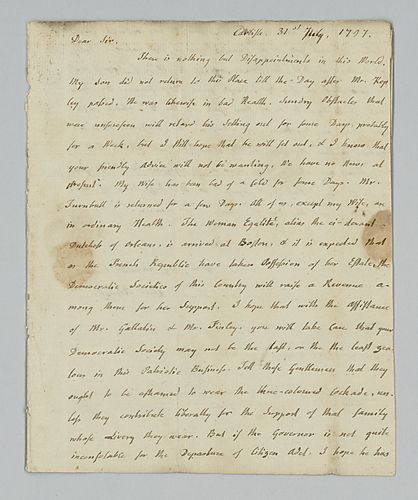 Carlisle. 31st July, 1797.
Dear Sir.
There is nothing but Disappointments in this World.
My Son did not return to this Place till the Day after Mr.
ley passed. He was likewise in bad Health. Sundry Obstacles that
were unforeseen will retard his Setting out for some Days, probably
for a Week, but I still hope that he will set out, & I know that
your friendly Advice will not be wanting. We have no News at
present. My Wife has been bad of a Cold for some Days. Mr.
Turnbull is returned for a few Days. All of us, except my Wife, are
in ordinary Health. The Woman Egalité, alias the ci-devant
Dutchess of Orleans, is arrived at Boston, & it is expected that
as the French Republic have taken Possession of her Estate, the
Democratic Societies of this Country will raise a Revenue a-
mong them for her Support. I hope that with the Assistance
of Mr. Gallatin & Mr. Finley, you will take Care that your
Democratic Society may not be the last, or the the least zea-
lous in this Patriotic Business. Tell those Gentlemen that they
ought to be ashamed to wear the three-coloured Cockade, un-
less they contribute liberally for the Support of that family
whose Livery they wear. But if the Governor is not quite
inconsolable for the Departure of Citizen Adet, I hope he has